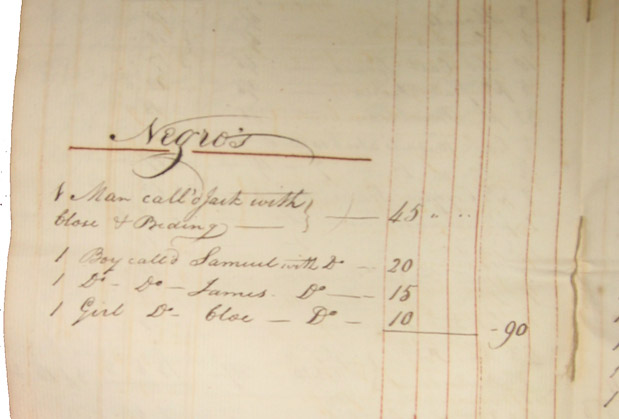 Negro's
1 Man call'd Jack with
Close & Beding } — 45 " "
1 Boy called Samuel with Do — 20
1 Do — Do — James. Do — 15
1 Girl Do — Cloe — Do — 10 — 90